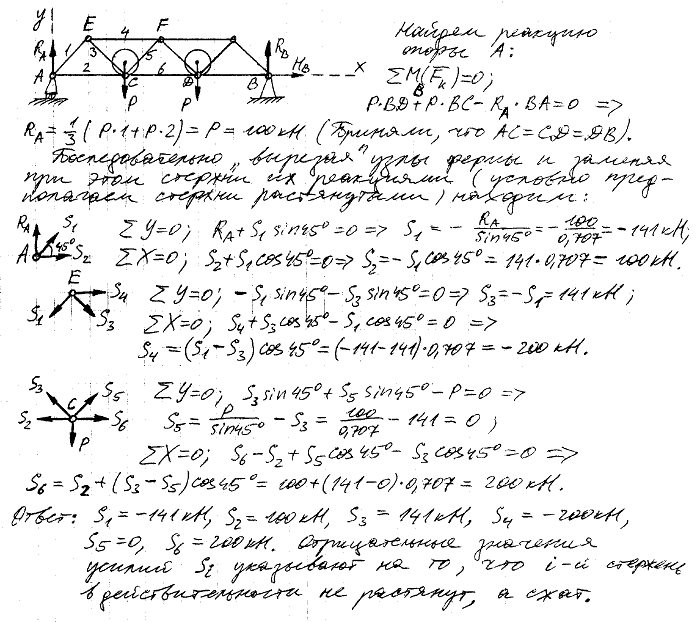 y
E 4 F
R_A 1 3 5 R_B
A 2 C 6 D B H_B x
P P
Найдем реакцию
опоры A:
ΣM_B(F̄_k)=0;
P·BD+P·BC−R_A·BA=0 =>
R_A=1/3(P·1+P·2)=P=100кН (Приняли, что AC=CD=DB).
Последовательно „вырезая" узлы фермы и заменяя
при этом стержни их реакциями (условно пред-
полагаем стержни растянутыми) находим:
R_A S_1 A 45° S_2
ΣY=0; R_A+S_1 sin45°=0 => S_1=−R_A/sin45°=−100/0,707=−141кН;
ΣX=0; S_2+S_1cos45°=0=> S_2=−S_1cos45°=141·0,707=100кН.
E S_4 S_1 S_3
ΣY=0; −S_1sin45°−S_3sin45°=0=> S_3=−S_1=141кН;
ΣX=0; S_4+S_3cos45°−S_1cos45°=0 =>
S_4=(S_1−S_3)cos45°=(−141−141)·0,707=−200кН.
S_3 C S_5 S_2 S_6 P
ΣY=0; S_3sin45°+S_5sin45°−P=0 =>
S_5=P/sin45°−S_3=100/0,707−141=0;
ΣX=0; S_6−S_2+S_5cos45°−S_3cos45°=0 =>
S_6=S_2+(S_3−S_5)cos45°=100+(141−0)·0,707=200кН.
Ответ: S_1=−141кН, S_2=100кН, S_3=141кН, S_4=−200кН,
S_5=0, S_6=200кН. Отрицательные значения
усилий S_i указывают на то, что i-й стержень
в действительности не растянут, а сжат.